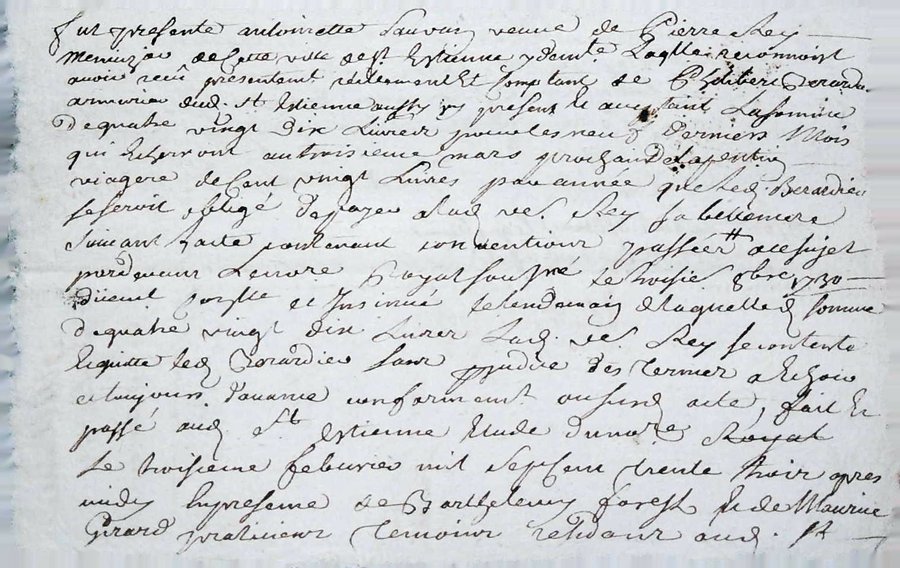 fut presente antoinette Sauvan veuve de Pierre Rey
Menuizier de Cette ville de St Estienne y demte Laqlle reconnoist
avoir receu presentemt reellement Et Comptant de Berardier
armurier dud. St Estienne aussy y present Le acceptant La somme
De quatre vingt Dix Livres pour les neuf Derniers Mois
qui Echerront au troisieme mars prochain De La pention
viagere de Cent vingt Livres par année que Led. Berardier
se seroit obligé de payer a Lad. ve. Rey sa bellemere
Suivant acte contenant conventions passées a ce sujet
pardevant Le nore Royal soussné le troisie. 8bre 1730
duemt conlle et Insinué le lendemain de laquelle d somme
De quatre vingt Dix Livres Lad. ve. Rey se contente
Et quitte led Berardier sans prejudice des termes a Echoir
et toujours d'avance conformemt au susd acte, fait Et
passé aud St Estienne Etude du nore Royal
Le troisieme febvrier mil sept cent trente trois apres
midy En presence de Barthelemy forest Et de Maurice
Girard praticiens Temoins residans aud. St